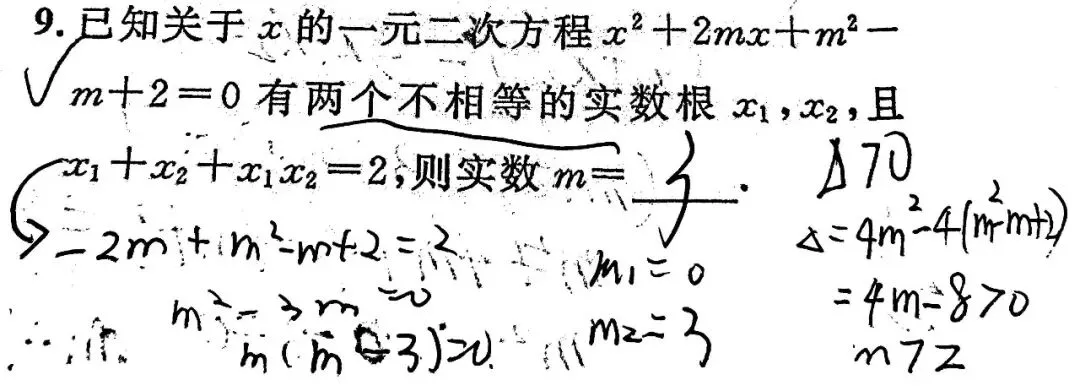 9. 已知关于 x 的一元二次方程 x² + 2mx + m² −
m + 2 = 0 有两个不相等的实数根 x₁, x₂, 且
x₁ + x₂ + x₁x₂ = 2, 则实数 m = 3 .
Δ70
−2m + m² − m + 2 = 2
Δ = 4m² − 4(m² − m + 2)
m₁ = 0
= 4m − 8 > 0
m² − 3m = 0
m(m − 3) = 0
m₂ = 3
m > 2